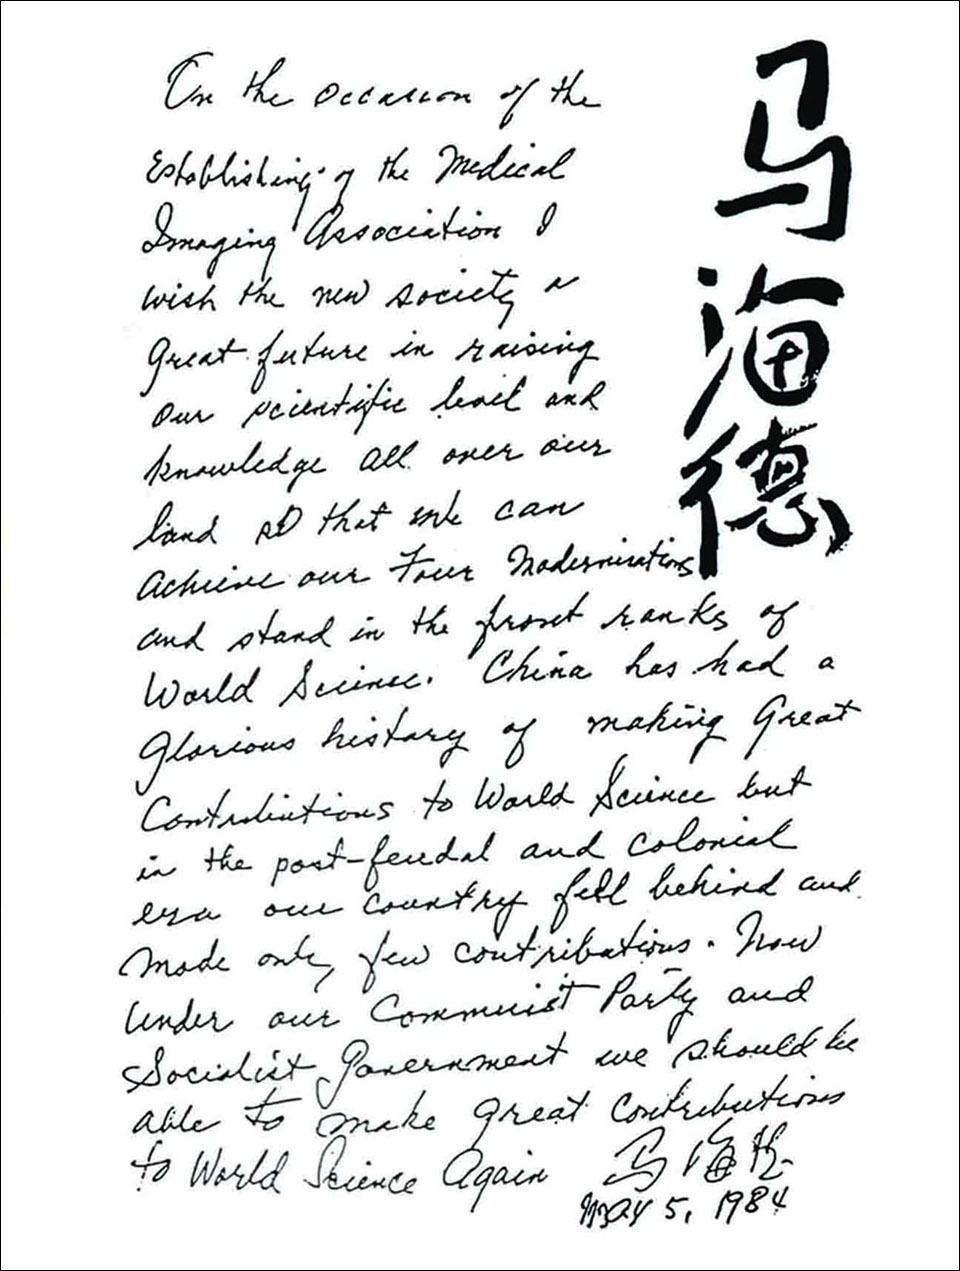 On the occasion of the
Establishing of the Medical
Imaging Association I
wish the new society a
great future in raising
our scientific level and
knowledge all over our
land so that we can
achieve our Four Modernisations
and stand in the front ranks of
World Science. China has had a
glorious history of making Great
Contributions to World Science but
in the post-feudal and colonial
era our country fell behind and
made only few contributions. Now
under our Communist Party and
Socialist Government we should be
able to make great contributions
to World Science Again
马海德
May 5, 1984
马海德